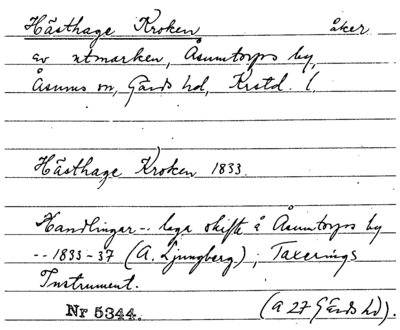 Hästhage Kroken åker
av utmarken, Åsumtorps by,
Åsums sn, Gärds hd, Krstd. l.
Hästhage Kroken 1833.
Handlingar -- laga skifte å Åsumtorps by
-- 1833-37 (A. Ljungberg); Taxerings
Instrument.
Nr 5344. (a 27 Gärds hd).